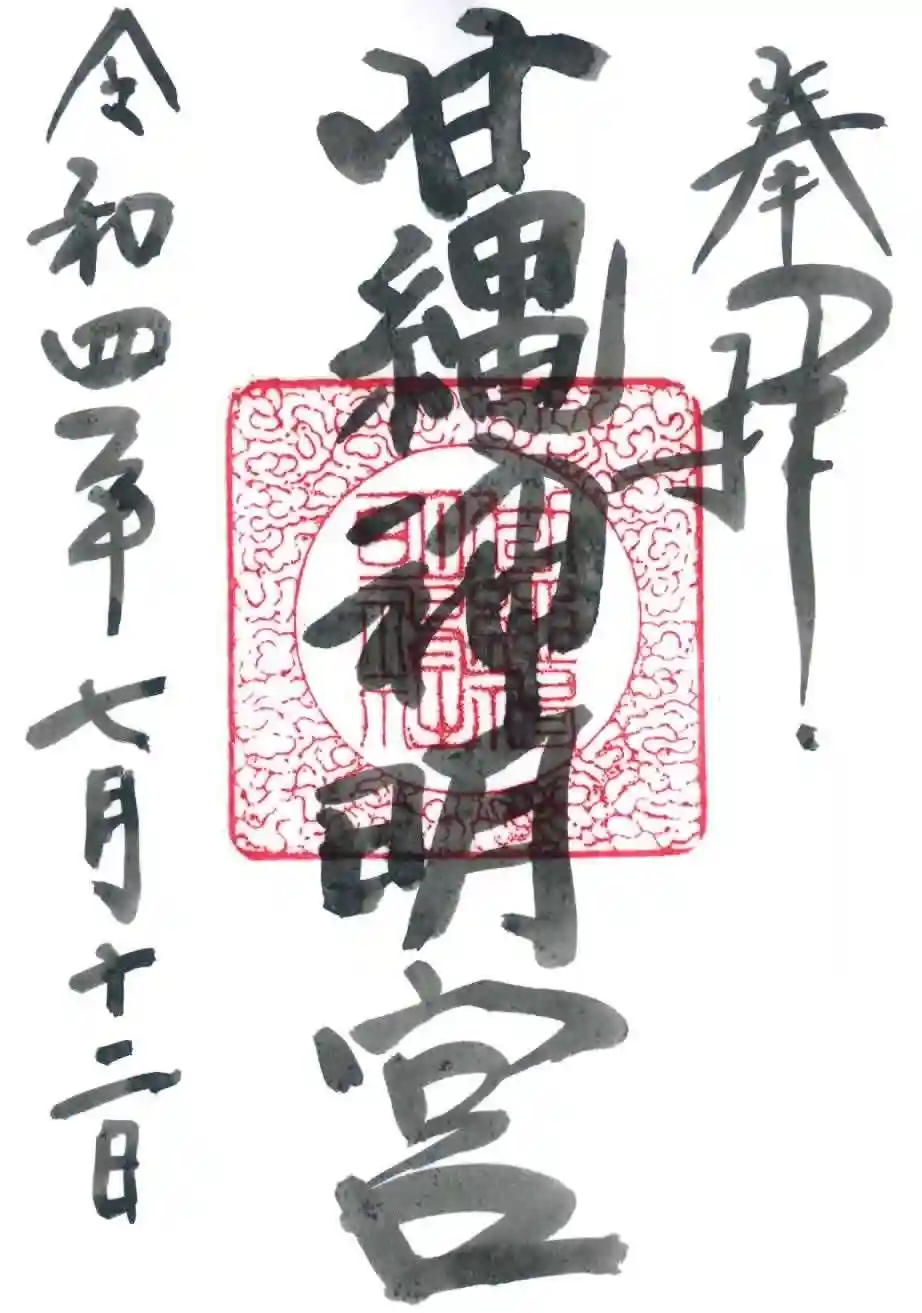 奉拝
甘縄神明宮
令和四年七月十二日